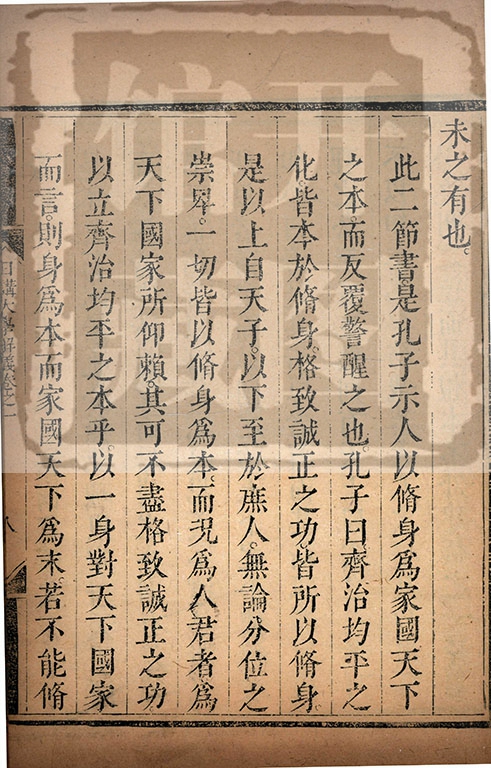 未之有也。
此二節書。是孔子示人以脩身爲家國天下
之本。而反覆警醒之也。孔子曰齊治均平之
化皆本於脩身。格致誠正之功。皆所以脩身。
是以上自天子。以下至於庶人。無論分位之
崇卑。一切皆以脩身爲本。而況爲人君者爲
天下國家所仰賴。其可不盡格致誠正之功
以立齊治均平之本乎。以一身對天下國家
而言。則身爲本而家國天下爲末。若不能脩
日講大學解義卷之一
八